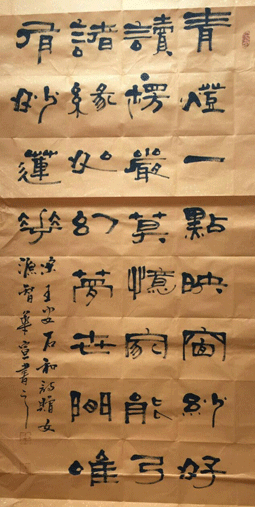 青燈一點映窗紗好
讀楞嚴莫憶家能了
諸緣如幻夢世間唯
有妙蓮華
宋王安石和詩女
書之